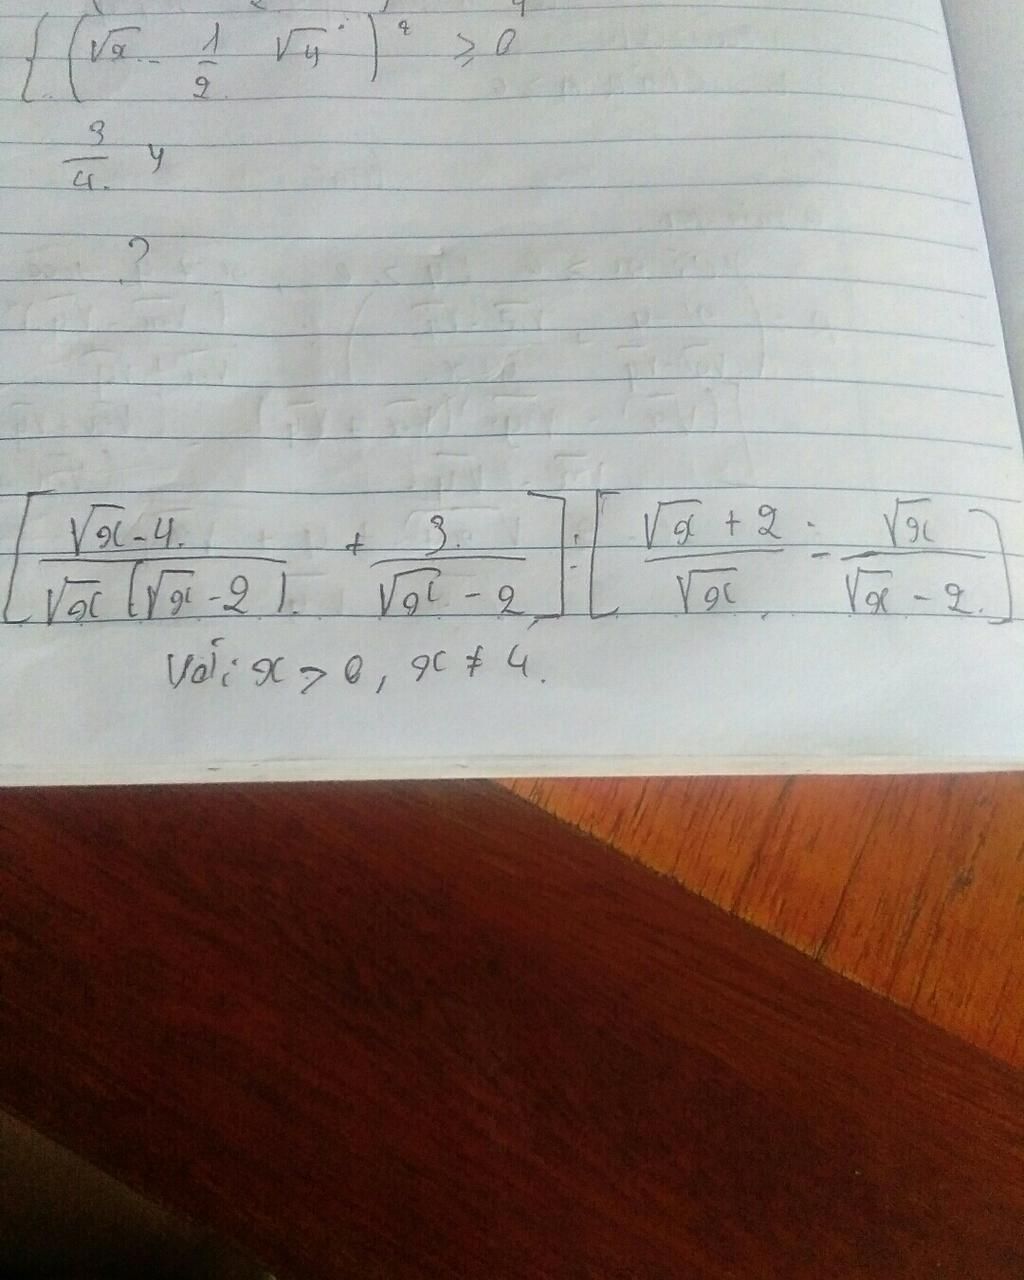 { (√x - 1/2 √y)² ≥ 0
3/4 y
?
[ (√x - 4)/(√x (√x - 2)) + 3/(√x - 2) ] : [ (√x + 2)/√x - √x/(√x - 2) ]
Với x > 0, x ≠ 4.